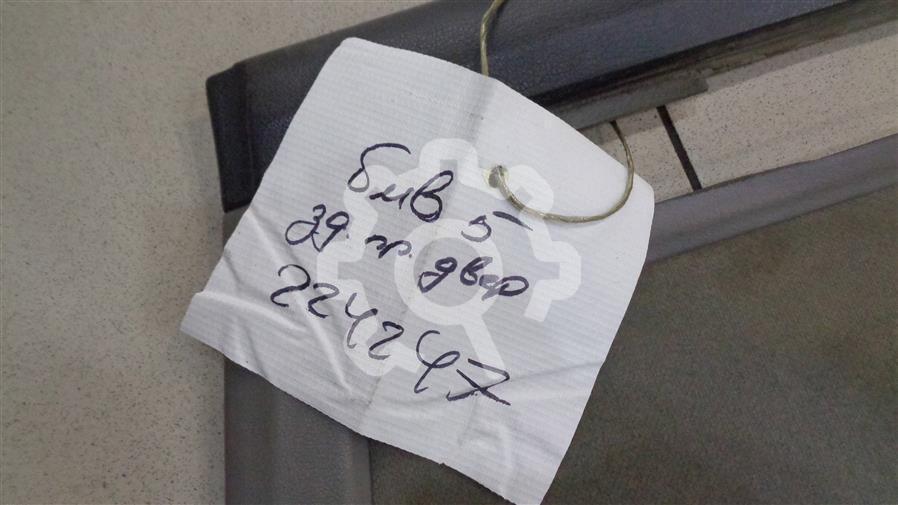 бмв 5
зд. пр. двер
224247